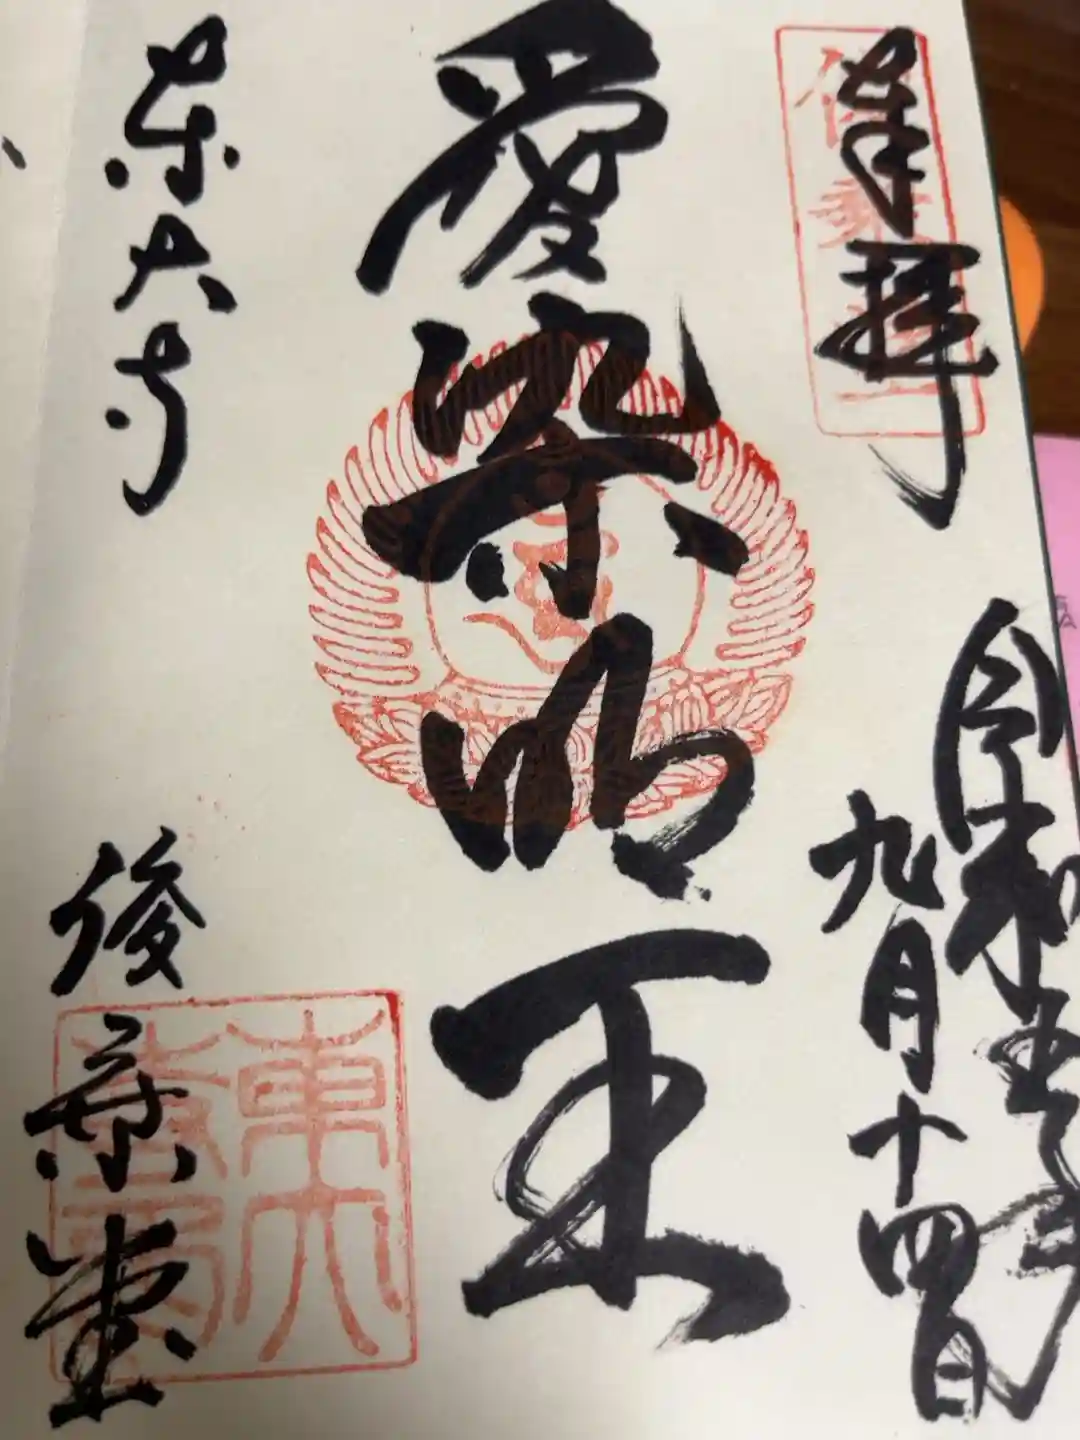 奉拝
令和五年
九月十四日
愛染明王
東大寺
俊乗堂
東大